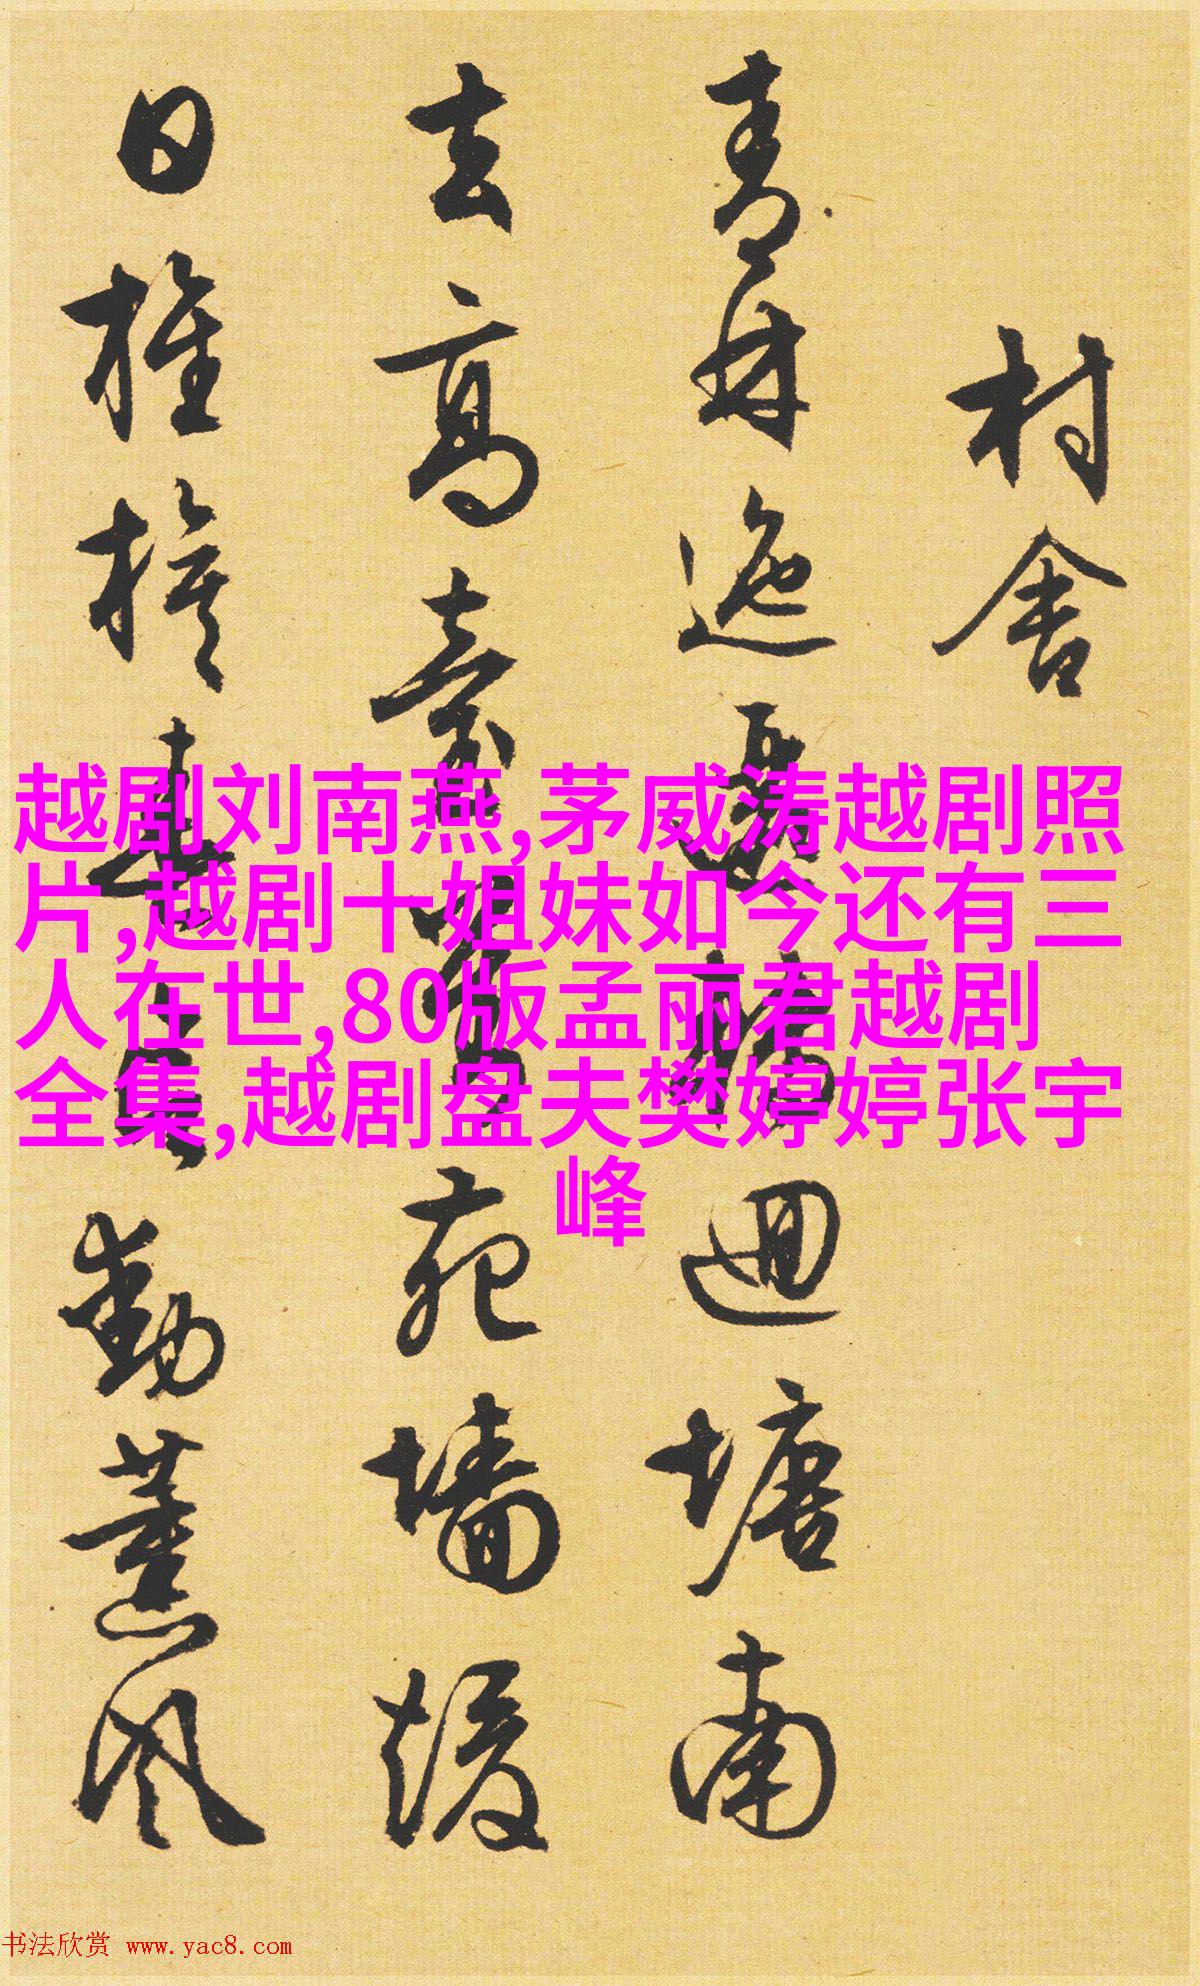 村舍
青林迤逦转回塘南
去高台对苑墙缓
日推挨春
勤薰风
越剧刘南燕,茅威涛越剧照
片,越剧十姐妹如今还有三
人在世,80版孟丽君越剧
全集,越剧盘夫樊婷婷张宇
峰
书法欣赏 www.yac8.com